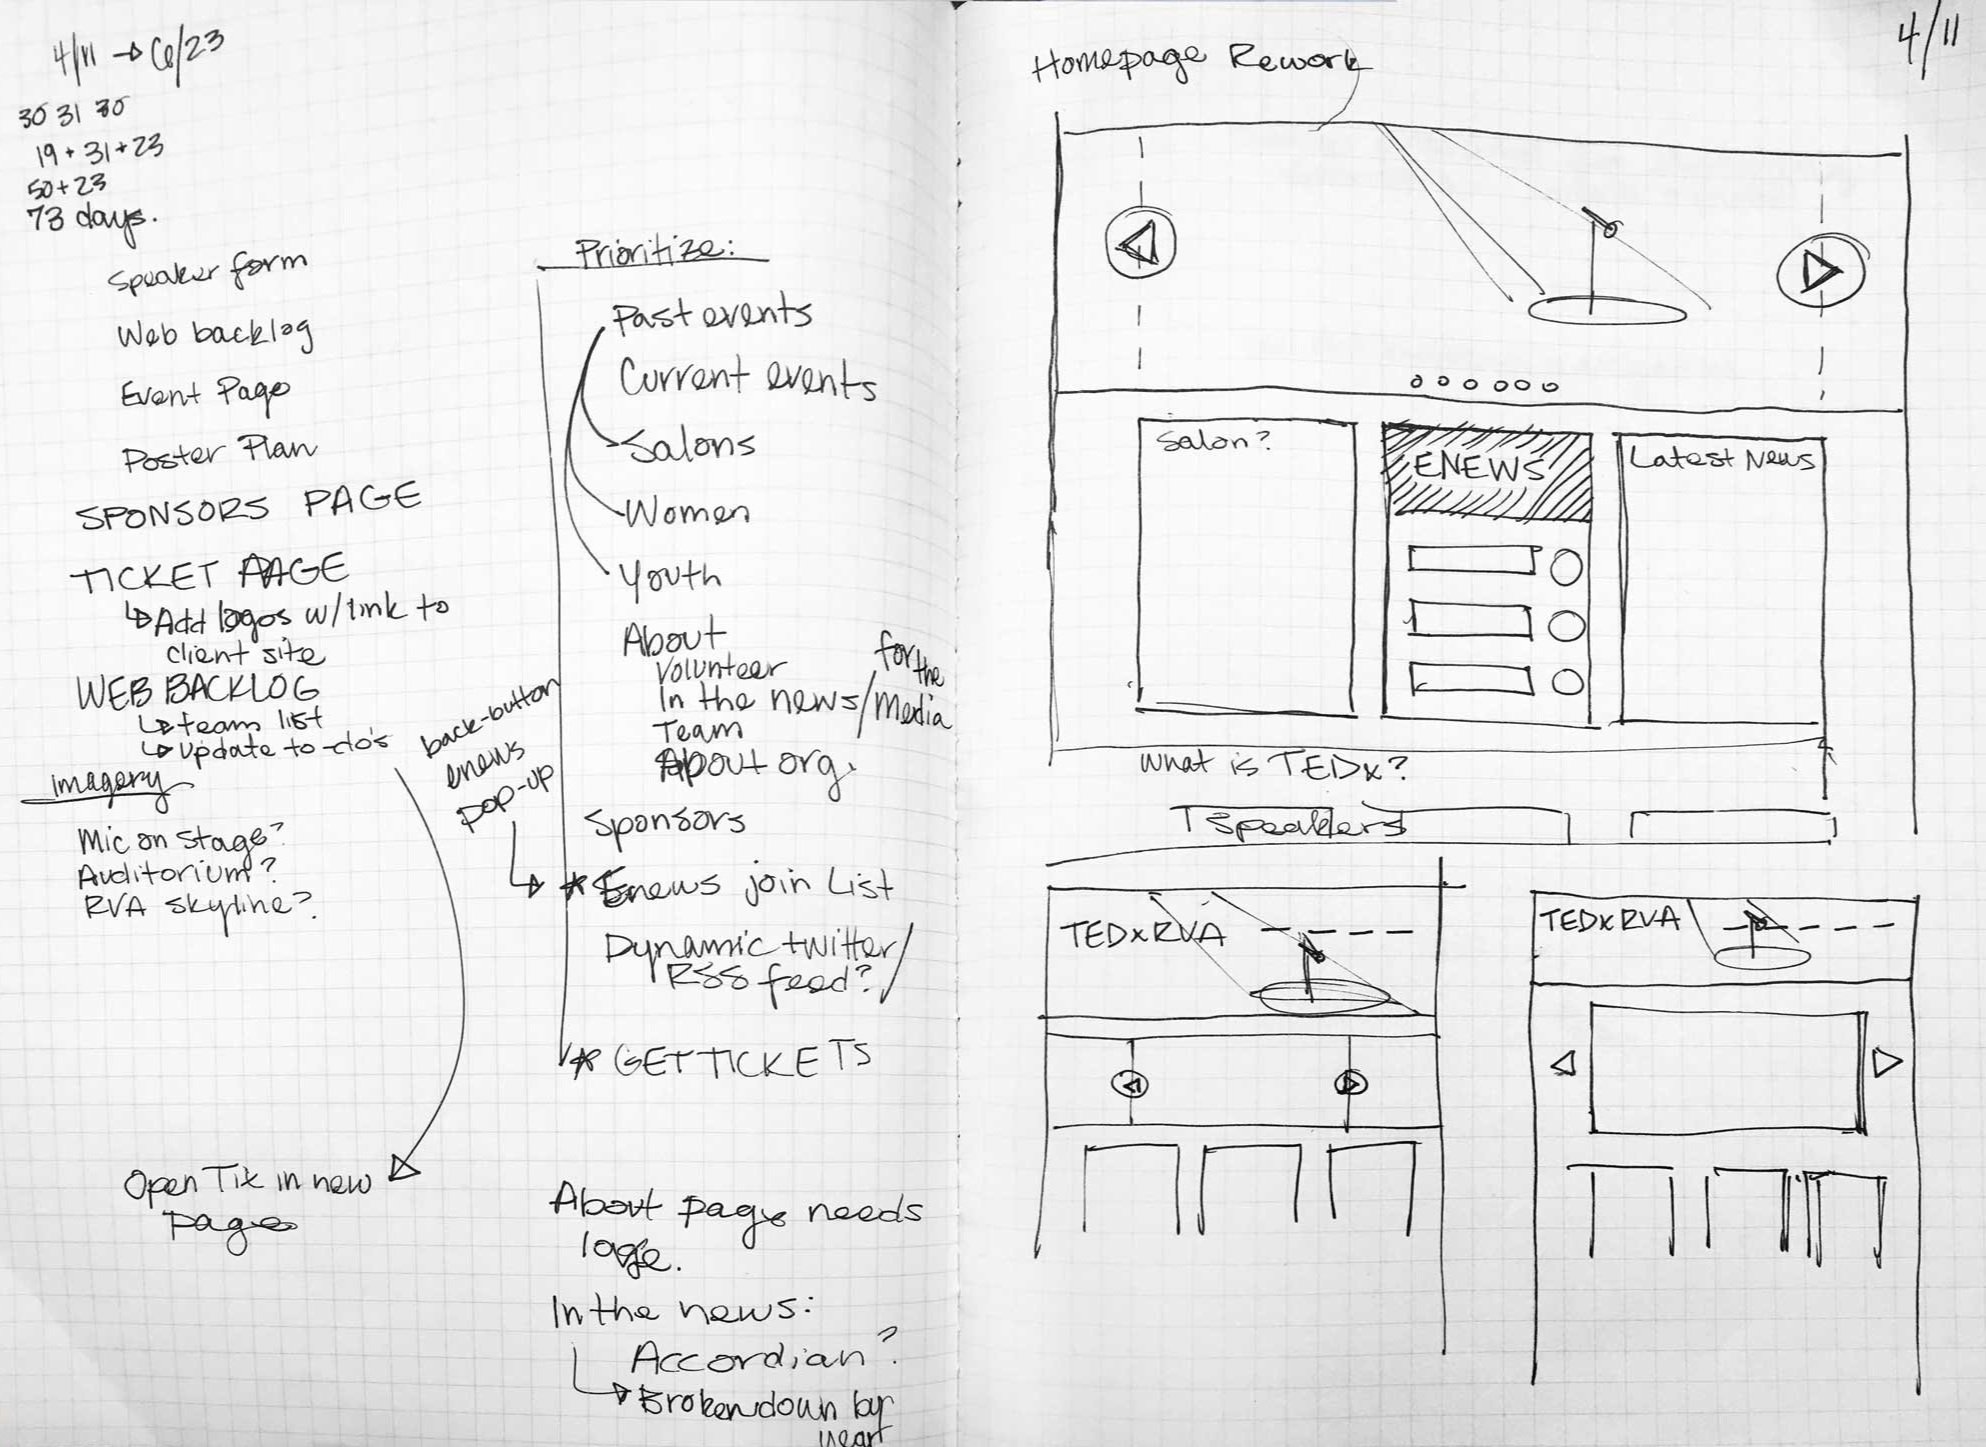 4/11 → 6/23
30 31 30
19 + 31 + 23
50 + 23
73 days.
Speaker form
Web backlog
Event Page
Poster Plan
SPONSORS PAGE
TICKET PAGE
↳ Add logos w/ link to
client site
WEB BACKLOG
↳ team list
↳ update to-do's
imagery
Mic on stage?
Auditorium?
RVA skyline?
Open Tix in new
page
back-button
enews
pop-up
Prioritize:
Past events
Current events
Salons
Women
Youth
About
Volunteer
In the news / for the
Media
Team
About org.
Sponsors
* Enews join List
Dynamic twitter/
RSS feed?
* GET TICKETS
About page needs
In the news:
Accordian?
Brokendown by
4/11
Homepage Rework
Salon?
ENEWS
Latest News
What is TEDx?
Speakers
TEDxRVA
TEDxRVA